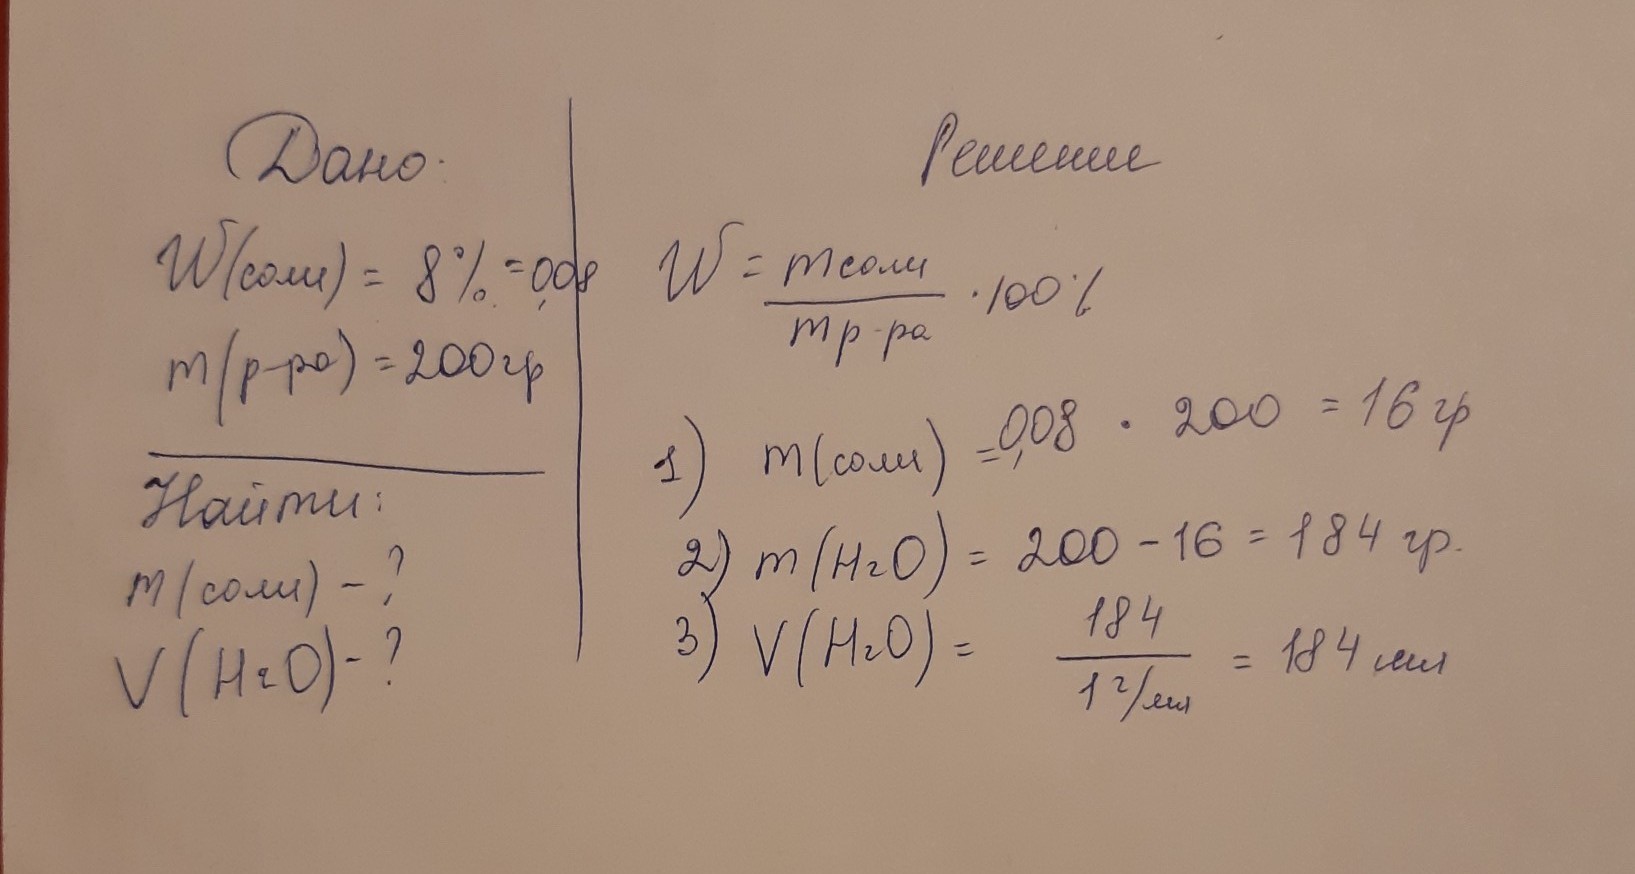 Дано:
W(соли) = 8% = 0,08
m(р-ра) = 200 гр
Найти:
m(соли) - ?
V(H2O) - ?
Решение
W = m соли / m р-ра · 100%
1) m(соли) = 0,08 · 200 = 16 гр
2) m(H2O) = 200 - 16 = 184 гр.
3) V(H2O) = 184 / 1 г/мл = 184 мл